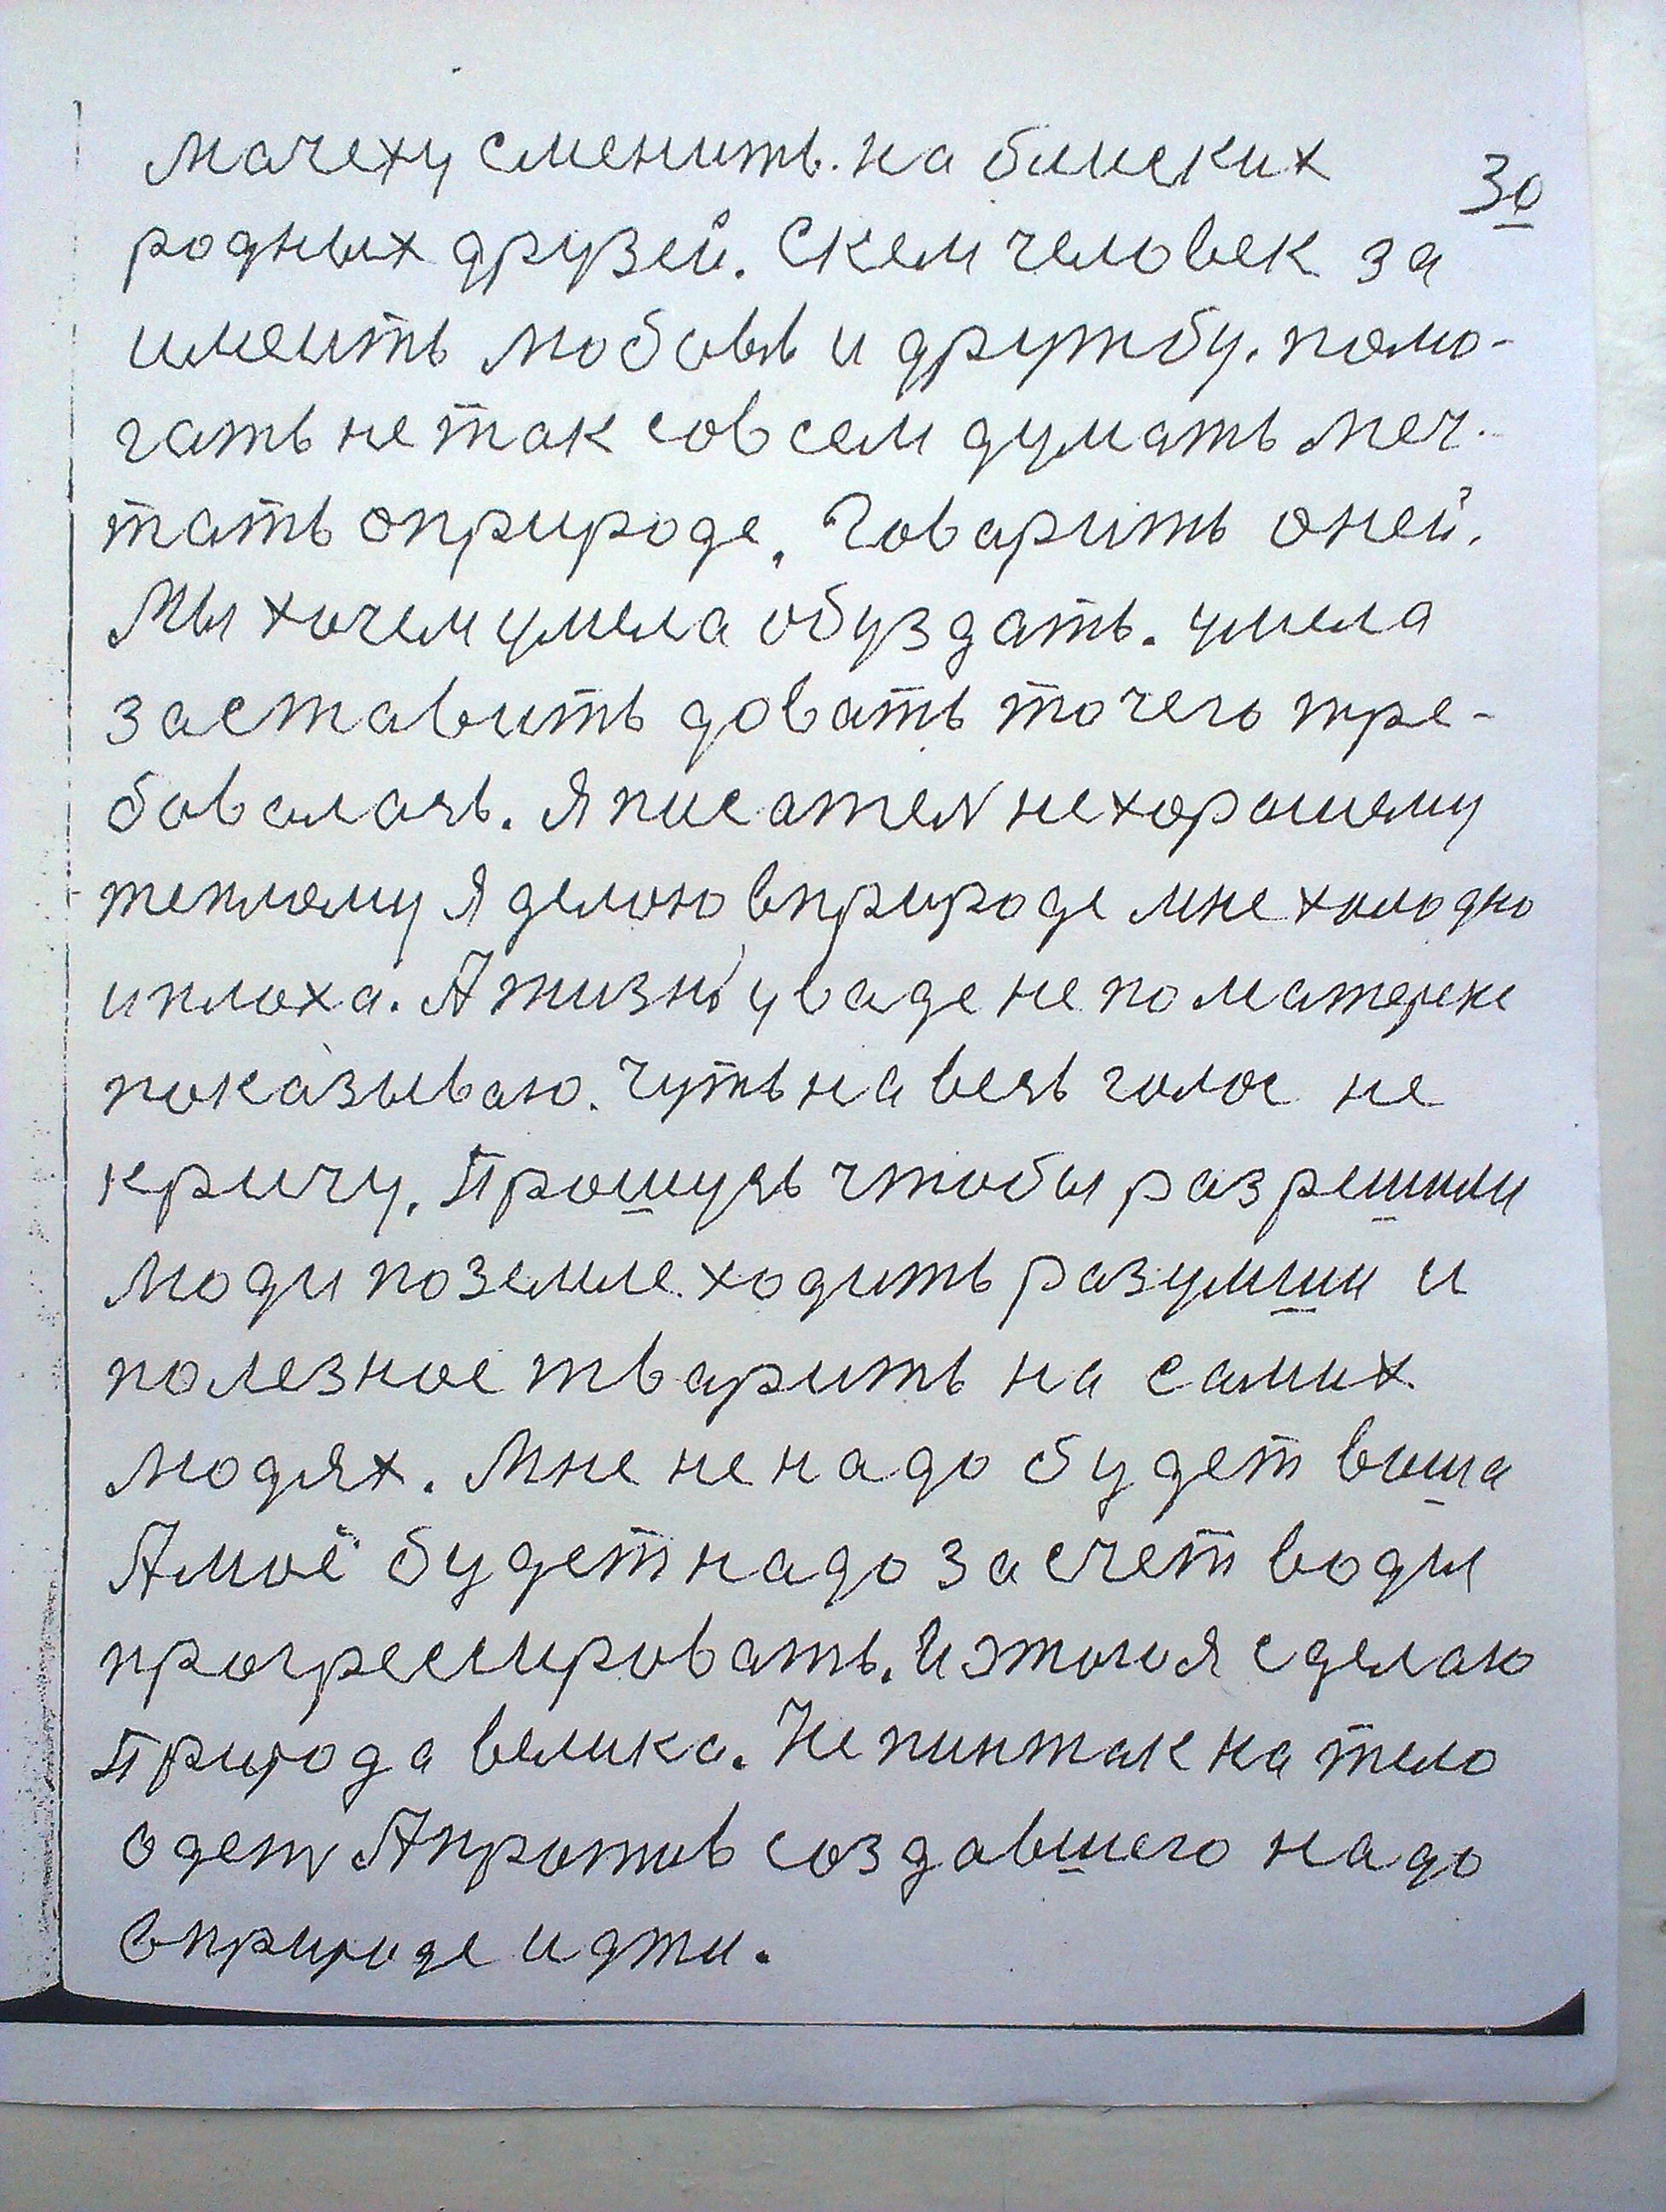 мачеху сменить. на блиских
30
родных друзей. Скем человек за
имеить любовь и дружбу. помо-
гать не так совсем думать меч-
тать оприроде. Говарить оней.
Мы хочем умела обуздать. умела
заставить довать точего тре-
бовалась. Я писател нехорошему
теплому Я делою вприроде мне холодно
иплоха. А жизнь у ваде не по матерске
показываю. Чуть на весь голос не
кричу. Прошусь чтобы разрешили
люди поземле ходить разумши и
полезное тварить на самих
людях. Мне не надо будет выша
А моё будет надо за счет воды
прогресировать. И этого я сделаю
Природа велика. Не пинтак на тело
одет А против создавшего надо
вприроде идти.